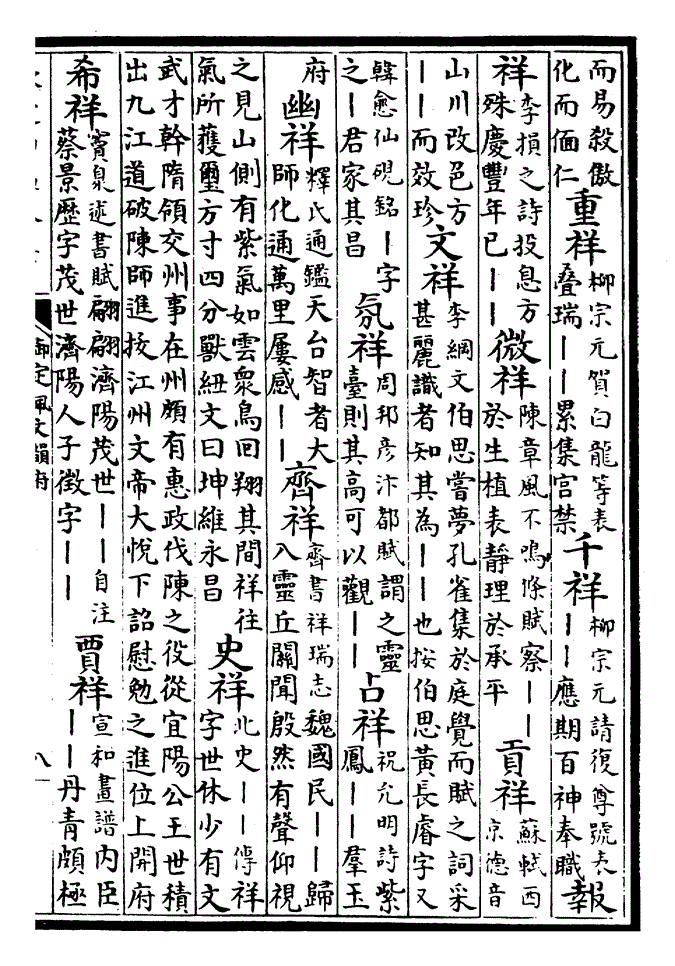 而易殺傲
化而偭仁
重祥
柳宗元賀白龍等表
叠瑞||累集宮禁
千祥
柳宗元請復尊號表
||應期百神奉職
報
祥
李損之詩投息方
殊慶豐年已||
微祥
陳章風不鳴條賦察||
於生植表靜理於承平
貢祥
蘇軾西
京德音
山川改邑方
||而效珍
文祥
李綱文伯思嘗夢孔雀集於庭覺而賦之詞采
甚麗識者知其為||也按伯思黃長睿字又
韓愈仙硯銘|字
之|君家其昌
氛祥
周邦彥汴都賦謂之靈
臺則其高可以觀||
占祥
祝允明詩紫
鳳||羣玉
府
幽祥
釋氏通鑑天台智者大
師化通萬里屢感||
齊祥
齊書祥瑞志魏國民||歸
入靈丘關聞殷然有聲仰視
之見山側有紫氣如雲衆鳥回翔其間祥往
氣所獲璽方寸四分獸紐文曰坤維永昌
史祥
北史||傳祥
字世休少有文
武才幹隋領交州事在州頗有惠政伐陳之役從宜陽公王世積
出九江道破陳師進拔江州文帝大悅下詔慰勉之進位上開府
希祥
竇臮述書賦翩翩濟陽茂世||自注
蔡景歷字茂世濟陽人子徵字||
賈祥
宣和畫譜内臣
||丹青頗極
御定佩文韻府